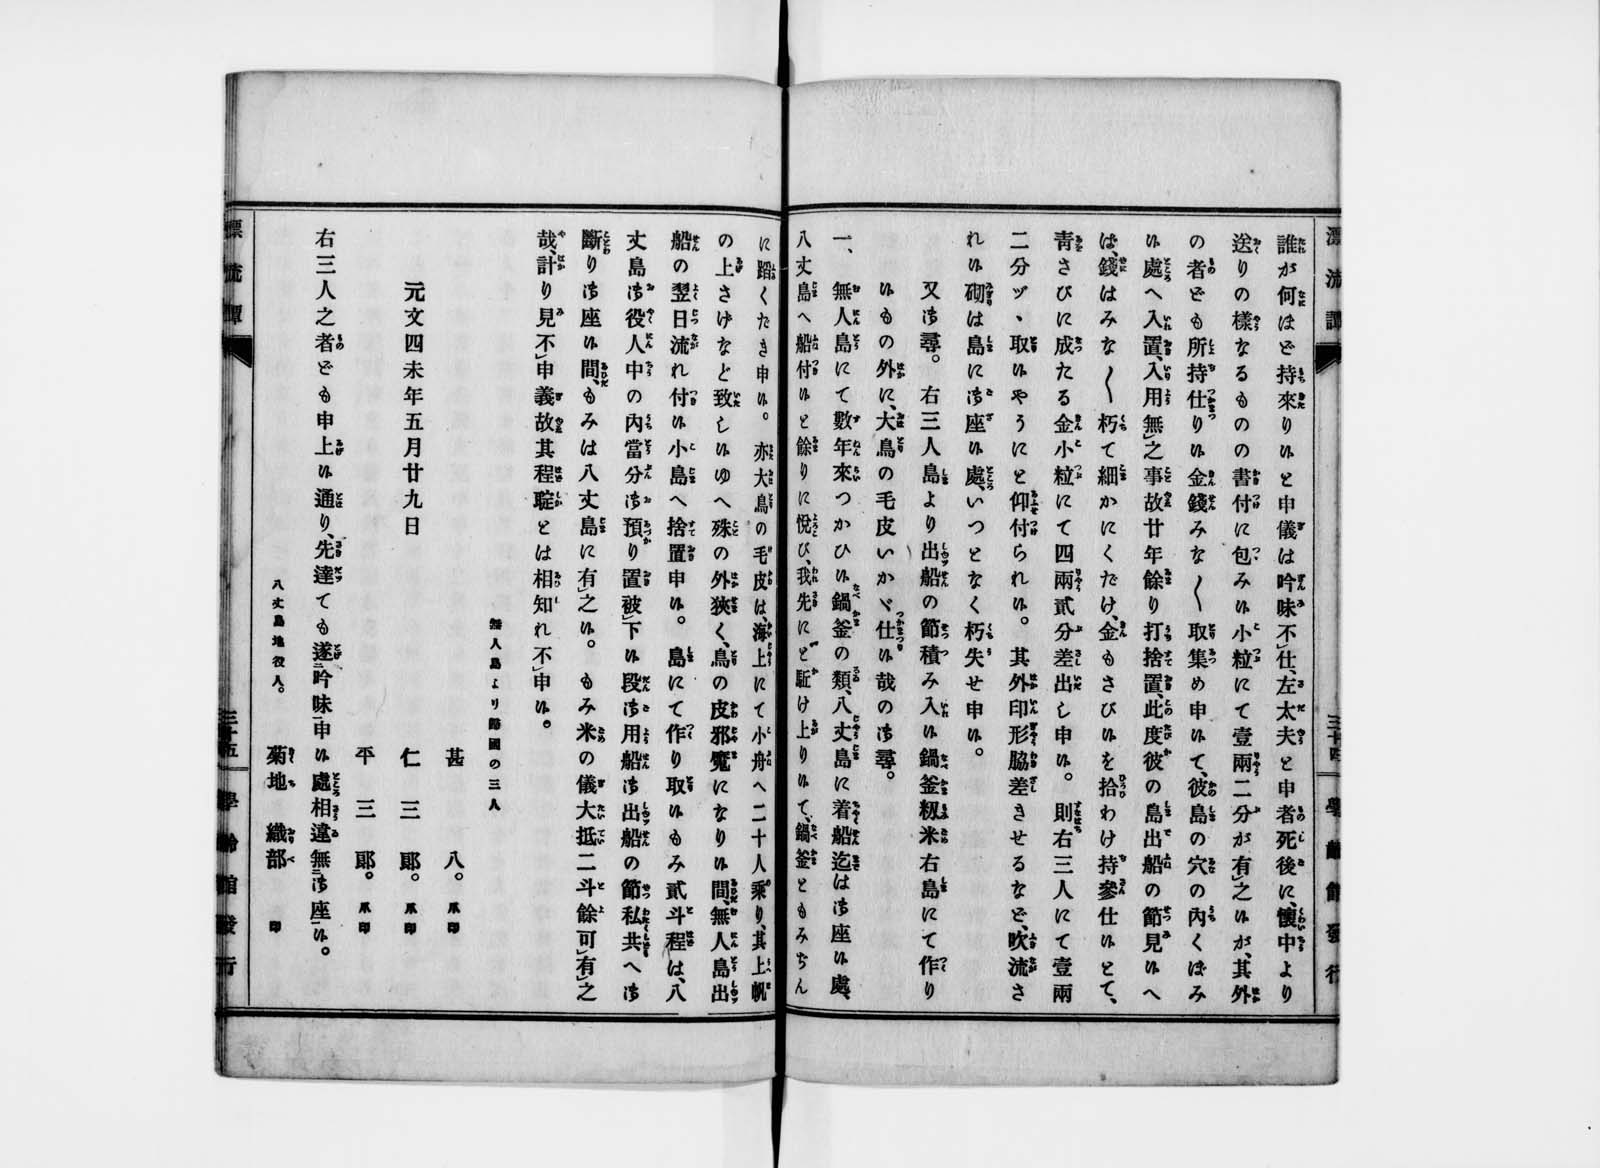 漂流譚
三十四
學齡館發行
誰が何ほど持來り候と申儀は吟味不仕、左太夫と申者死後に、懷中より
送りの樣なるものの書付に包み候小粒にて壹兩二分が有之候が、其外
の者ども所持仕り候金錢みな〱取集め申候て、彼島の穴の内くぼみ
候處へ入置、入用無之事故廿年餘り打捨置、此度彼の島出船の節見候へ
ば、錢はみな〱朽て細かにくだけ、金もさび候を拾わけ持參仕候とて、
靑さびに成たる金小粒にて四兩貳分差出し申候。則右三人にて壹兩
二分ヅヽ取候やうにと仰付られ候。其外印形脇差きせるなど、吹流さ
れ候砌は島に御座候處、いつとなく朽失せ申候。
又御尋。右三人島より出船の節積み入候鍋釜籾米右島にて作り
候もの外に、大鳥の毛皮いかヾ仕候哉の御尋。
一、無人島にて數年來つかひ候鍋釜の類、八丈島に着船迄は御座候處、
八丈島へ船付候と餘りに悅び、我先にと駈け上り候て、鍋釜ともみぢん
に蹈くだき申候。亦大鳥の毛皮は、海上にて小舟へ二十人乘り、其上帆
の上さげなど致し候ゆへ殊の外狹く、鳥の皮邪魔になり候間、無人島出
船の翌日流れ付候小島へ捨置申候。島にて作り取候もみ貳斗程は、八
丈島御役人中の内當分御預り置被下候段御用船御出船の節私共へ御
斷り御座候間、もみは八丈島に有之候。もみ米の儀大抵二斗餘可有之
哉、計り見不申義故其程聢とは相知れ不申候。
無人島より歸國の三人
元文四未年五月廿九日
甚八。爪印
仁三郞。爪印
平三郞。爪印
右三人之者ども申上候通り、先達ても遂吟味申候處相違無御座候。
八丈島地役人。
菊地織部 印
漂流譚
三十五
學齡館發行